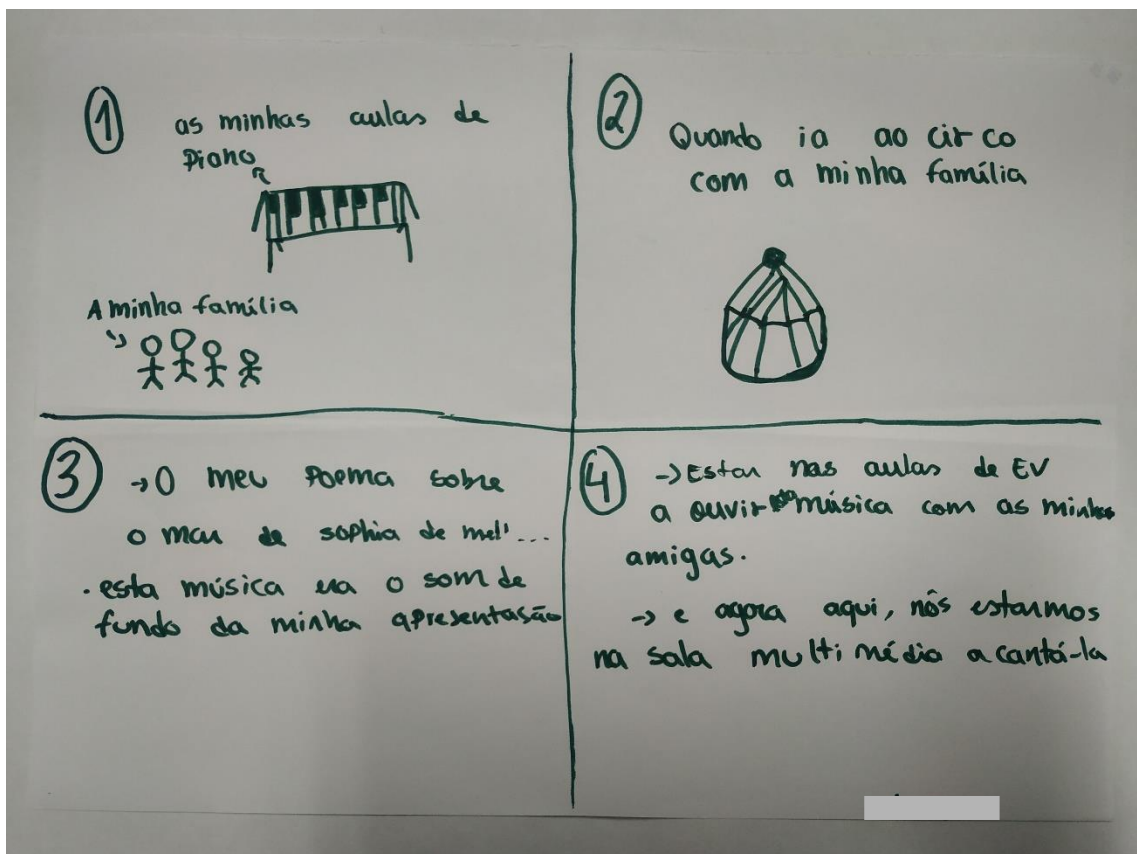 1
as minhas aulas de
Piano
A minha família
2
Quando ia ao circo
com a minha família
3
→ O meu Poema sobre
o mar de sophia de mel'...
. esta música era o som de
fundo da minha apresentasão
4
→ Estar nas aulas de EV
a ouvir música com as minhas
amigas.
→ e agora aqui, nós estarmos
na sala multimédia a cantá-la